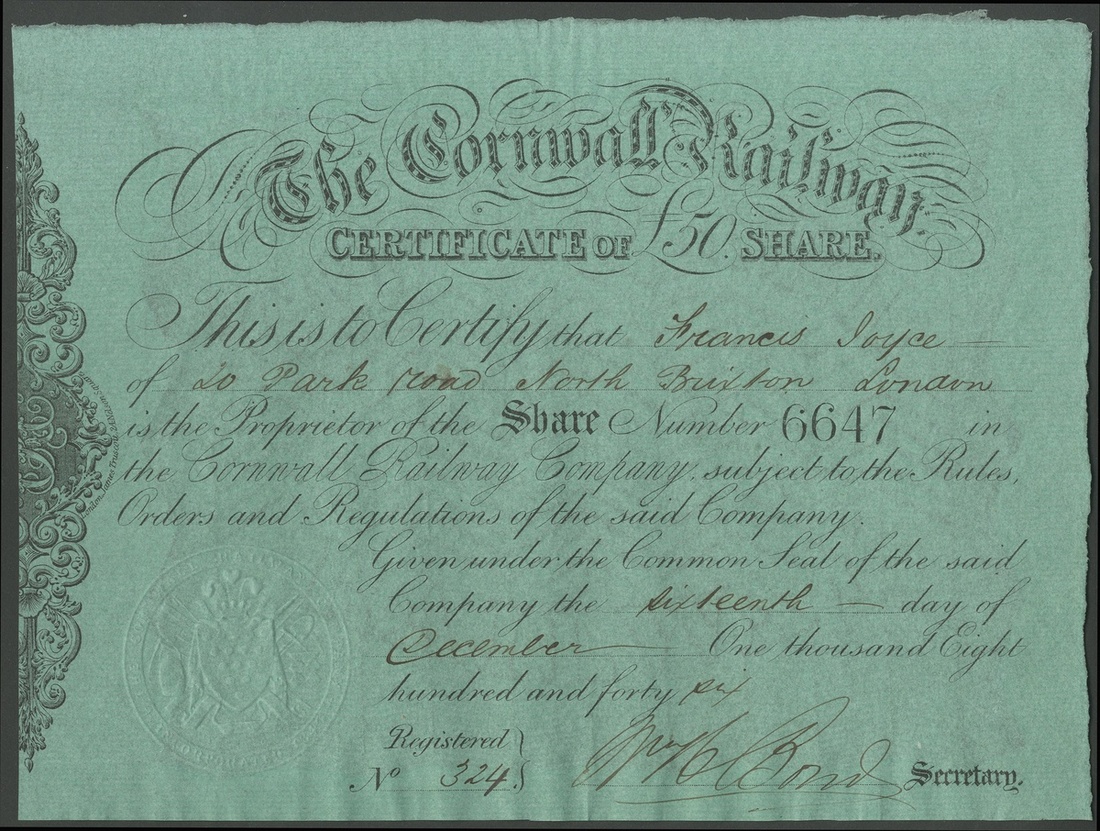 The Cornwall Railway.
CERTIFICATE OF £50. SHARE.
This is to Certify that Francis Joyce —
of 20 Park road North Brixton London
is the Proprietor of the Share Number 6647 in
the Cornwall Railway Company, subject to the Rules,
Orders and Regulations of the said Company.
Given under the Common Seal of the said
Company the sixteenth — day of
December — One thousand Eight
hundred and forty six
Registered
No 324.
Wm C Bond Secretary.
INCORPORATED